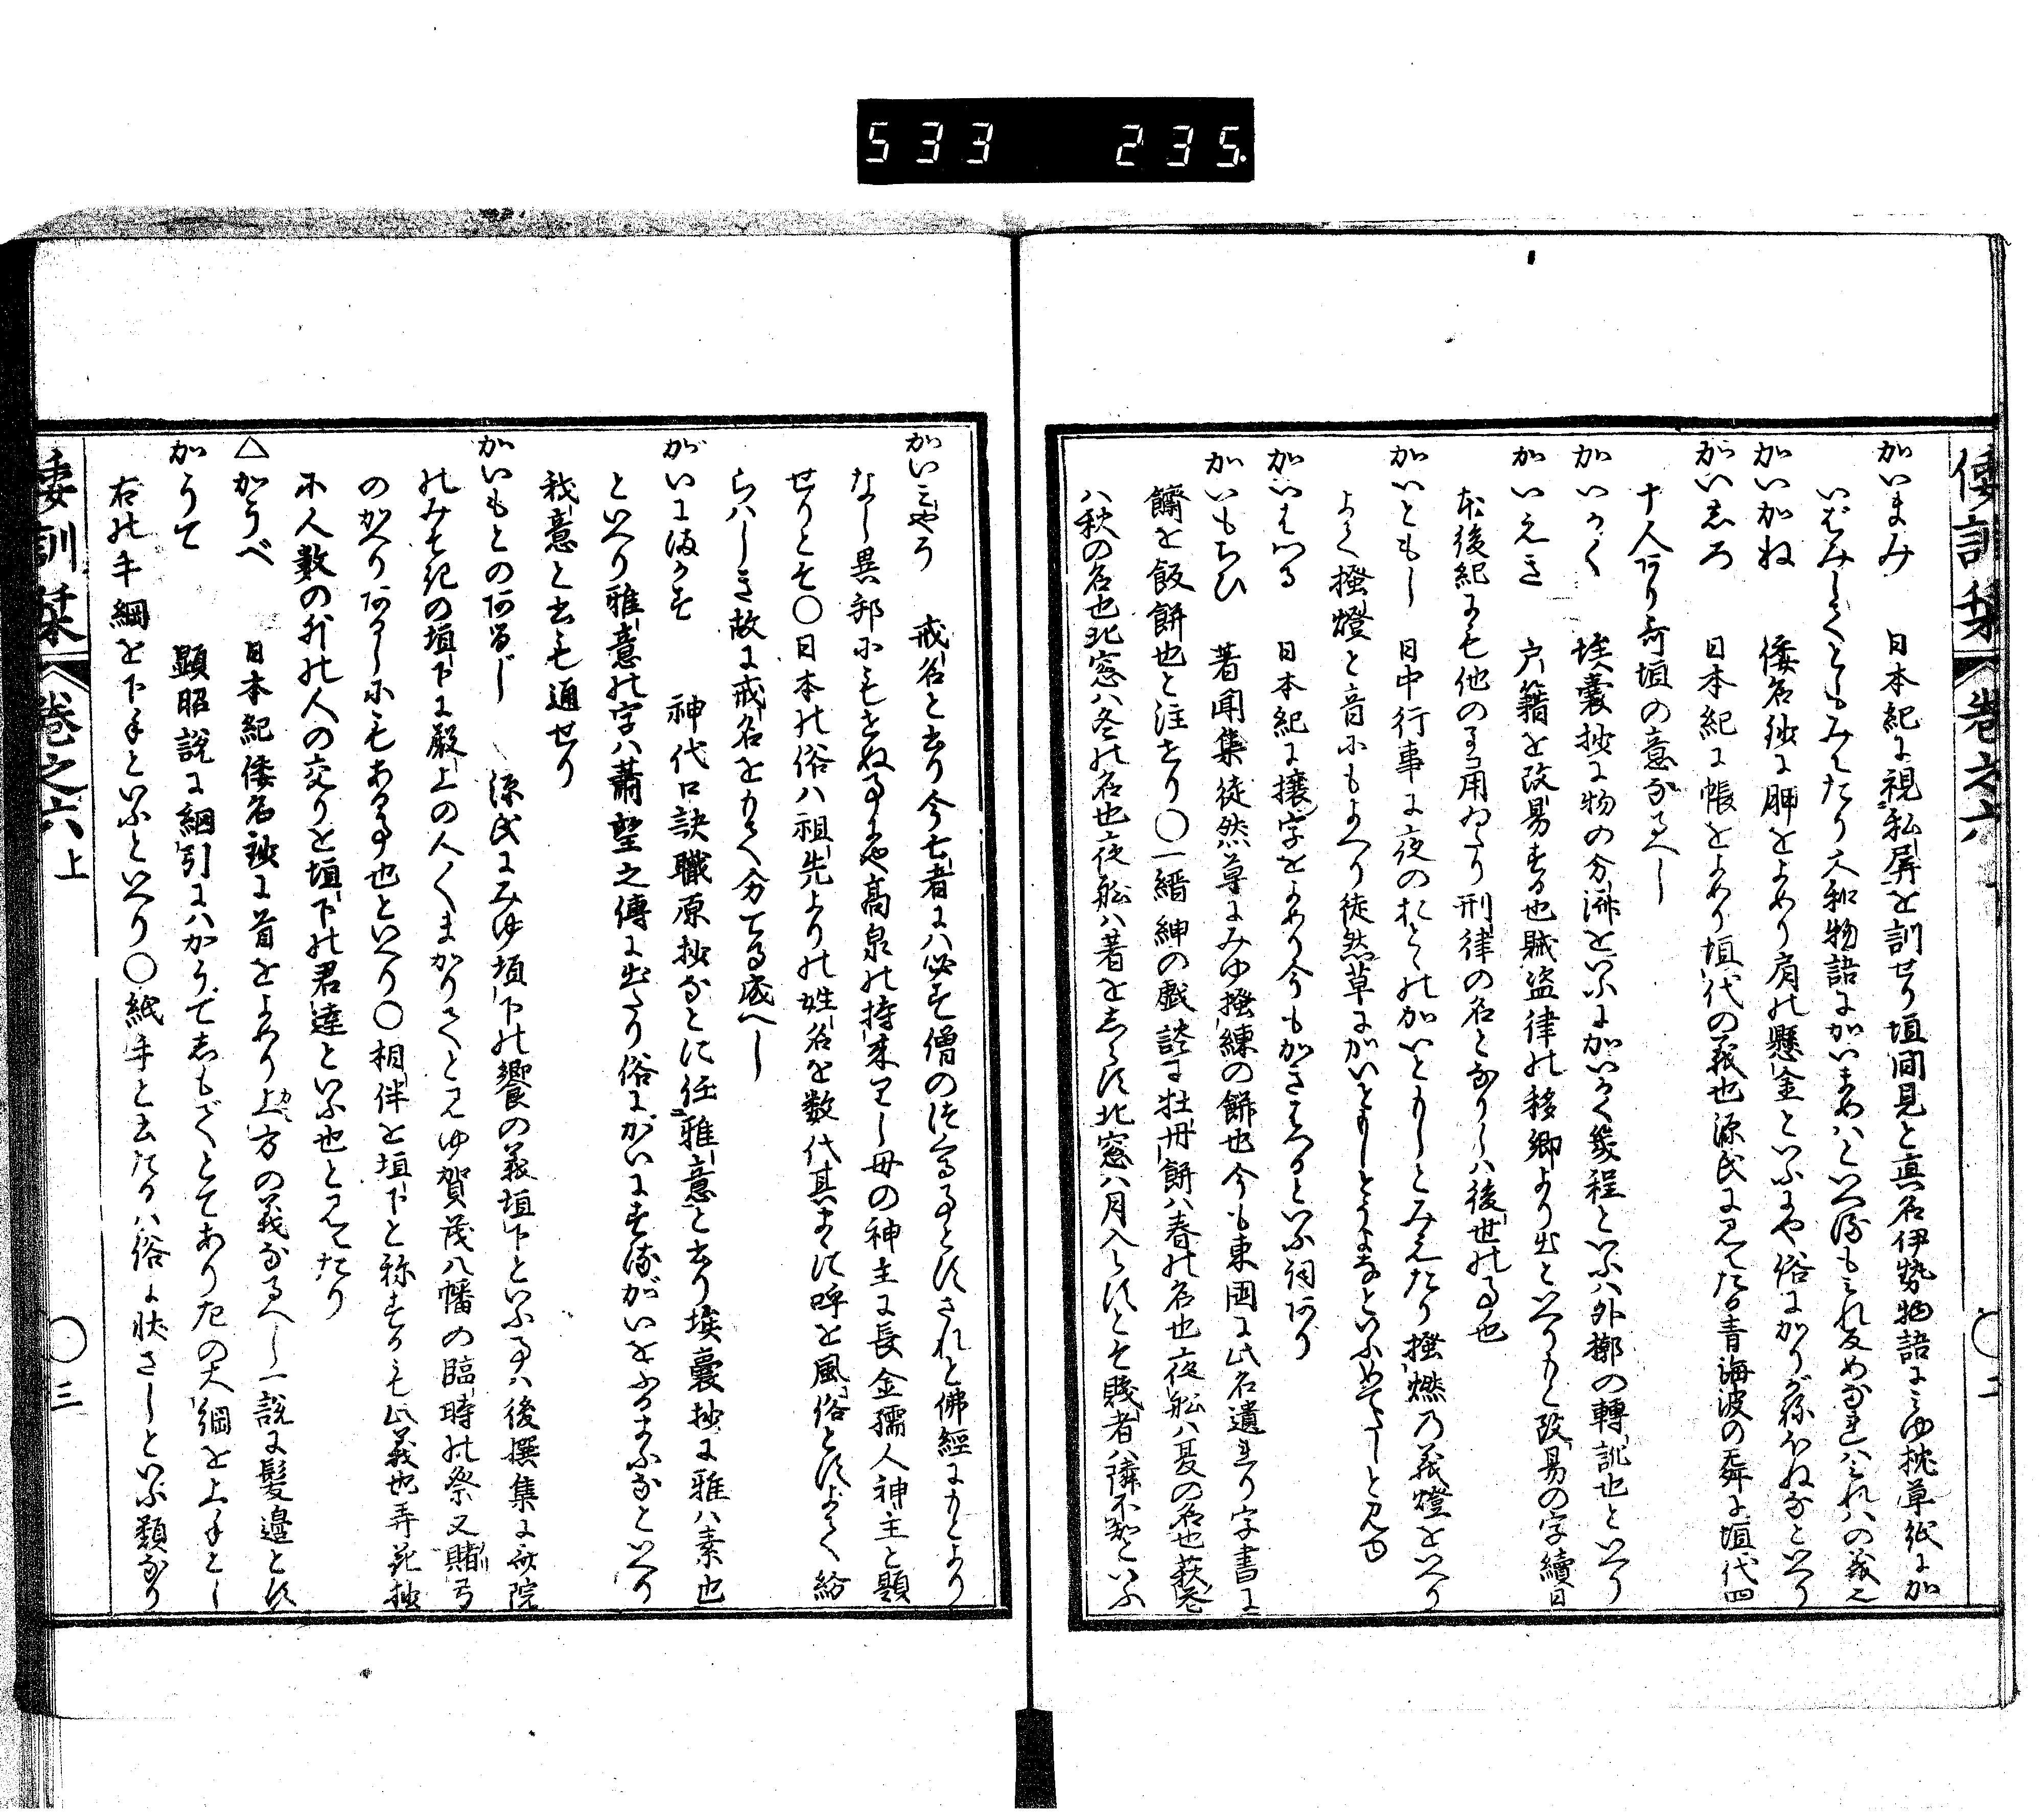 533 235.
倭訓栞 卷之六 二
かいまみ 日本紀に視私屏を訓せり垣間見と真名伊勢物語にみゆ枕草紙にか
いばみしくともみえたり大和物語にかいまめハといへるもみれ反めなれハみれハの義也
かいかね 倭名鈔に胛をよめり肩の懸金といふにや俗にかりがねほねなといへり
がいしろ 日本紀に帳をよめり垣代の義也源氏に見えたる青海波の舞に垣代四
十人あり奇垣の意なるへし
かいらく 埃囊抄に物の分済をいふにかいらく幾程といふハ外擲の轉訛也といへり
かいえき 戸籍を改易する也賊盗律の移郷より出といへりもと改易の字續日
本後紀にも他の事に用ゐたり刑律の名となりしハ後世の事也
かいともし 日中行事に夜のおとゝのかいともしとみえたり掻燃の義燈をいへり
よく掻燈と音にもよへり徒然草にかいともしとうよなといふめてたしと見ゆ
かいはらふ 日本紀に攘字をよめり今もかきはらふといふ詞あり
かいもちひ 著聞集徒然草にみゆ掻練の餅也今も東国に此名遺れり字書に
䭔を飯餅也と注せり〇一縉紳の戯談に牡丹餅ハ春の名也夜船ハ夏の名也萩花
ハ秋の名也北窓ハ冬の名也夜船ハ著をしらす北窓ハ月入らすとそ賤者ハ隣不知といふ
かいみやう 戒名と書り今亡者にハ必す僧のつくる事とすされと佛經にもとより
なし異邦にもきかぬ事にや高泉の持来りし母の神主に長金孺人神主と題
せりとそ〇日本の俗ハ祖先よりの姓名を数代其まゝに呼を風俗とすよて紛
らハしき故に戒名をもて分てる成へし
がいにまかす 神代口訣職原抄なとに任雅意と書り埃囊抄に雅ハ素也
といへり雅意の字ハ蕭望之傳に出たり俗にがいにするがいをふるまふなといへり
我意と書も通せり
かいもとのあるじ 源氏にみゆ垣下の饗の義垣下といふ事ハ後撰集に歌院
のみそきの垣下に殿上の人〳〵まかりてとみゆ賀茂八幡の臨時の祭又賭弓
のかへりあるしにもある事也といへり〇相伴を垣下と稱するも此義也弄花抄
に人数の外の人の交りを垣下の君達といふ也と見えたり
△かうべ 日本紀倭名鈔に首をよめり上方の義なるへし一説に髪邊とす
かうて 顕昭説に綱引にハかうてしもてくとてあり左の大綱を上手とし
右の手綱を下手といふといへり〇紙手と書たるハ俗に状さしといふ類なり
倭訓栞 卷之六上 三